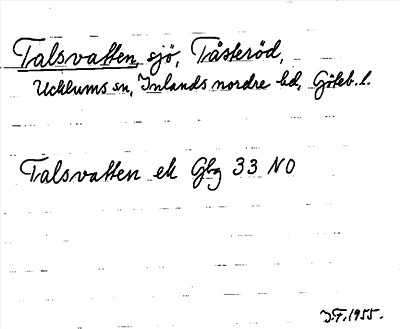 Talsvatten, sjö, Tåsteröd,
Ucklums sn, Inlands nordre hd, Göteb. l.
Talsvatten ek Gbg 33 NO
J.F. 1955.